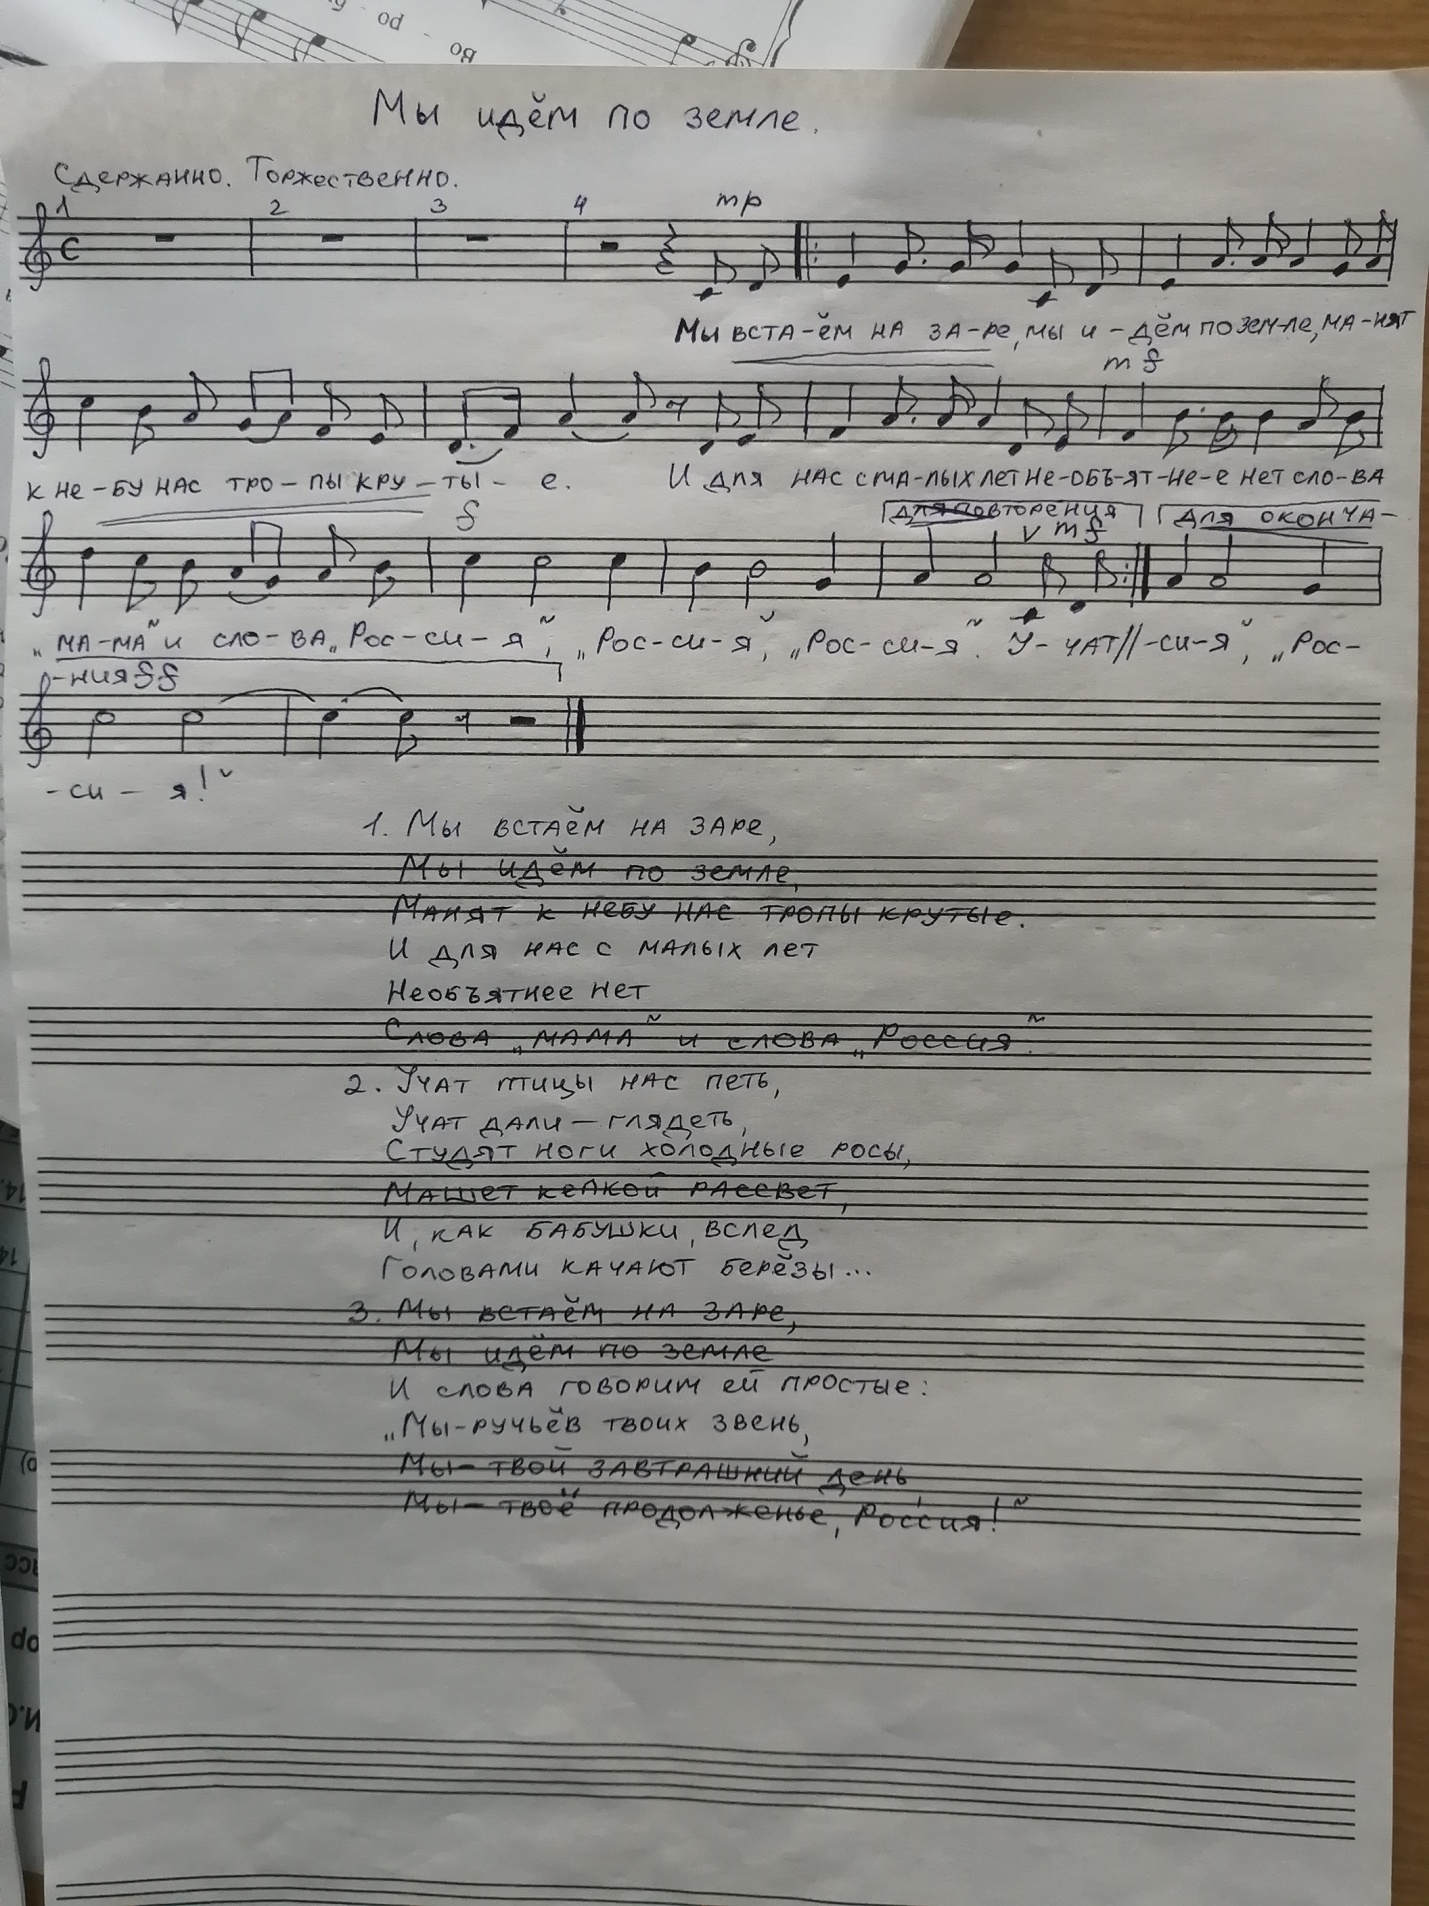 Во
ро
Мы идём по земле.
Сдержанно. Торжественно.
1 2 3 4 mp
С
Мы вста-ём на за-ре, мы и-дём по зем-ле, ма-нят
mf
к не-бу нас тро-пы кру-ты-е. И для нас с ма-лых лет не-объ-ят-не-е нет сло-ва
f
для повторения для оконча-
V mf
„ма-ма“ и сло-ва „Рос-си-я“, „Рос-си-я“, „Рос-си-я“. У-чат//-си-я“, „Рос-
-ния ff
-си-я!“
1. Мы встаём на заре,
Мы идём по земле,
Манят к небу нас тропы крутые.
И для нас с малых лет
Необъятнее нет
Слова „мама“ и слова „Россия“.
2. Учат птицы нас петь,
Учат дали — глядеть,
Студят ноги холодные росы,
Машет кепкой рассвет,
И, как бабушки, вслед
Головами качают берёзы...
3. Мы встаём на заре,
Мы идём по земле
И слова говорим ей простые:
„Мы-ручьёв твоих звень,
Мы-твой завтрашний день,
Мы-твоё продолженье, Россия!“